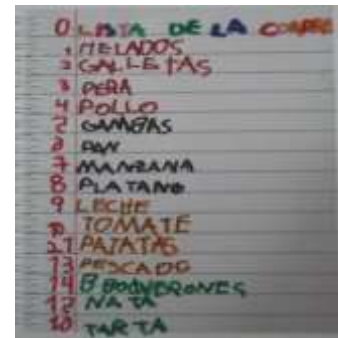 0 LISTA DE LA COMPRA
1 HELADOS
2 GALLETAS
3 PERA
4 POLLO
5 GAMBAS
6 PAN
7 MANZANA
8 PLATANO
9 LECHE
10 TOMATE
11 PATATAS
13 PESCADO
14 BOQUERONES
12 NATA
10 TARTA